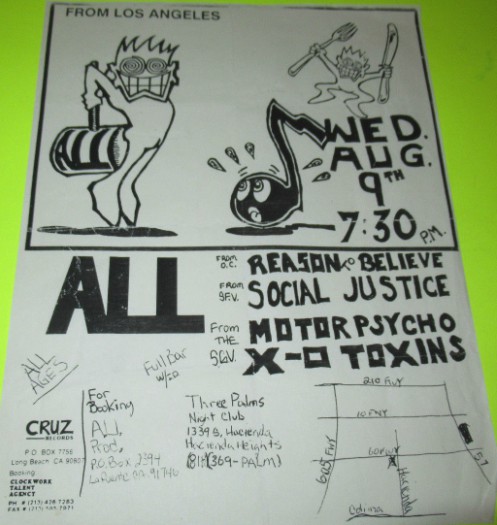 FROM LOS ANGELES
ALL
WED.
AUG.
9TH
7:30 P.M.
ALL
FROM O.C. REASON TO BELIEVE
FROM S.F.V. SOCIAL JUSTICE
From THE SGV. MOTORPSYCHO
X-O TOXINS
ALL AGES
Full Bar
W/ID
CRUZ
RECORDS
P.O. BOX 7756
Long Beach, CA 90807
Booking
CLOCKWORK
TALENT
AGENCY
PH # (213) 438.7283
FAX #
For
Booking
ALL
Prod.
P.O. Box 2394
La Puente CA. 91746
Three Palms
Night Club
1339 S. Hacienda
Hacienda Heights
(818) (369-PALM)
210 FWY
10 FWY
60 FWY
605 FWY
57
Hacienda
Colima